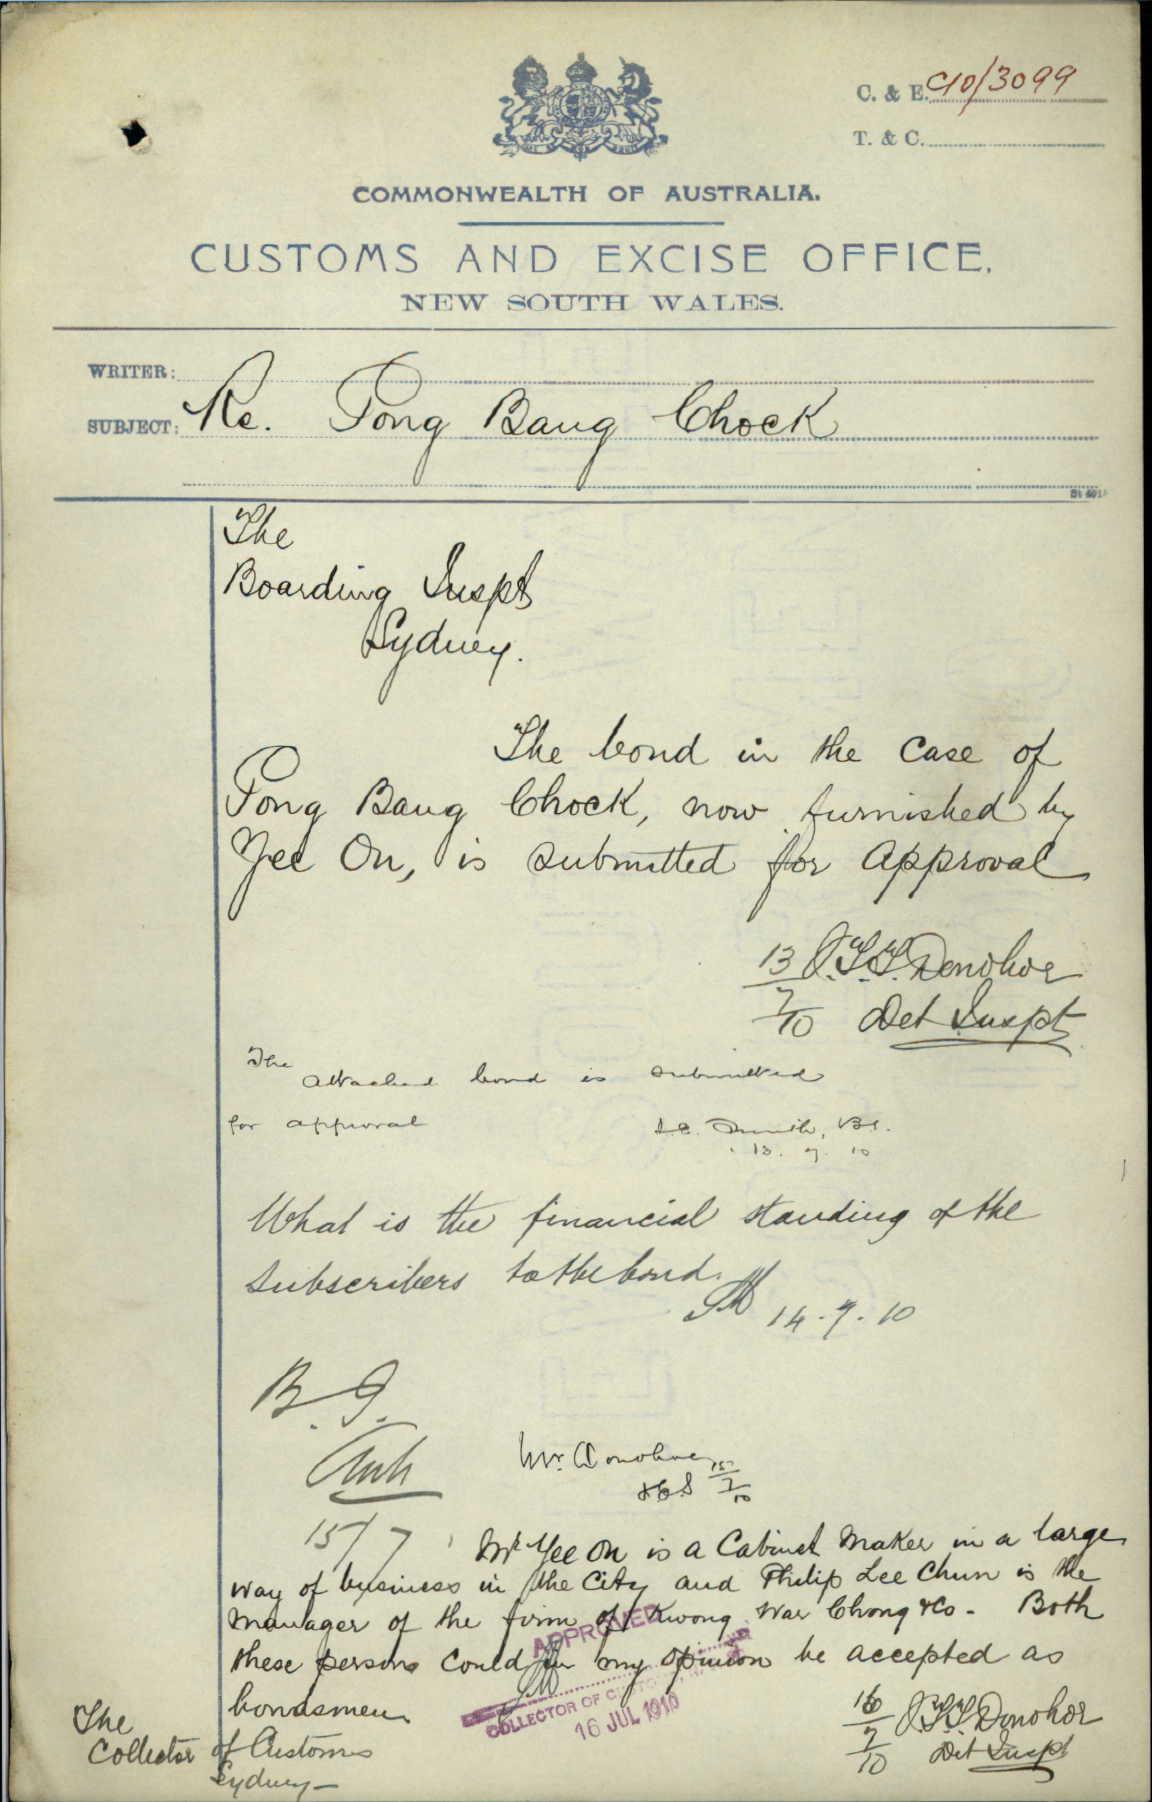 C. & E. C10/3099
T. & C.
COMMONWEALTH OF AUSTRALIA.
CUSTOMS AND EXCISE OFFICE,
NEW SOUTH WALES.
WRITER:
SUBJECT: Re. Pong Bang Chock
The
Boarding Inspt
Sydney.
The bond in the case of
Pong Bang Chock, now furnished by
Yee On, is submitted for approval
13/7/10 J.T.T. Donohoe
Det Inspt
The attached bond is submitted
for approval
Smith, B.I.
13. 7. 10
What is the financial standing of the
subscribers to the bond.
14.7.10
B. I.
15/7
Mr. Donohoe
15/7/10
Mr Yee On is a Cabinet Maker in a large
way of business in the City and Philip Lee Chun is the
Manager of the firm of Kwong War Chong & Co. Both
these persons could in my opinion be accepted as
bondsmen
APPROVED
COLLECTOR OF CUSTOMS
16 JUL 1910
16/7/10 J.T.T. Donohoe
Det Inspt
The
Collector of Customs
Sydney